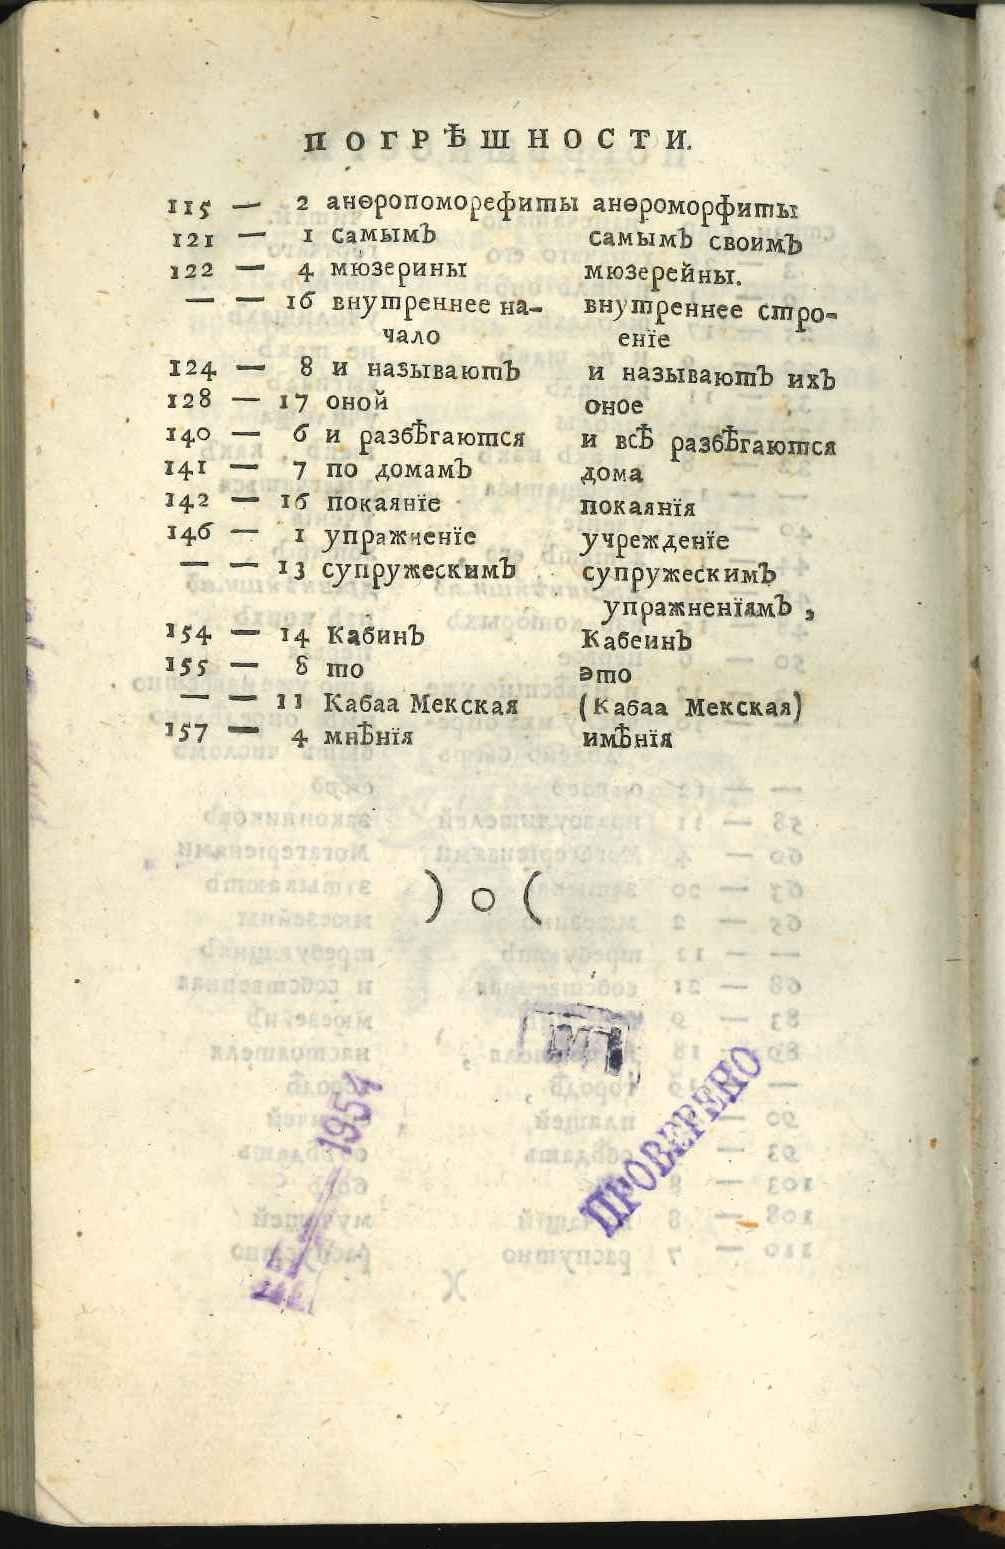 ПОГРѢШНОСТИ.
115 — 2 анѳропоморефиты анѳроморфиты
121 — 1 самымЪ самымЪ своимЪ
122 — 4 мюзерины мюзерейны.
— — 16 внутреннее на- внутреннее стро-
чало енїе
124 — 8 и называютЪ и называютЪ ихЪ
128 — 17 оной оное
140 — 6 и разбѢгаются и всѢ разбѢгаются
141 — 7 по домамЪ дома
142 — 16 покаянїе покаянїя
146 — 1 упражненїе учрежденїе
— — 13 супружескимЪ супружескимЪ
упражненїямЪ,
154 — 14 КабинЪ КабеинЪ
155 — 8 то это
— — 11 Кабаа Мекская (Кабаа Мекская)
157 — 4 мнѢнїя имѢнїя
) о (
1954
ПРОВЕРЕНО